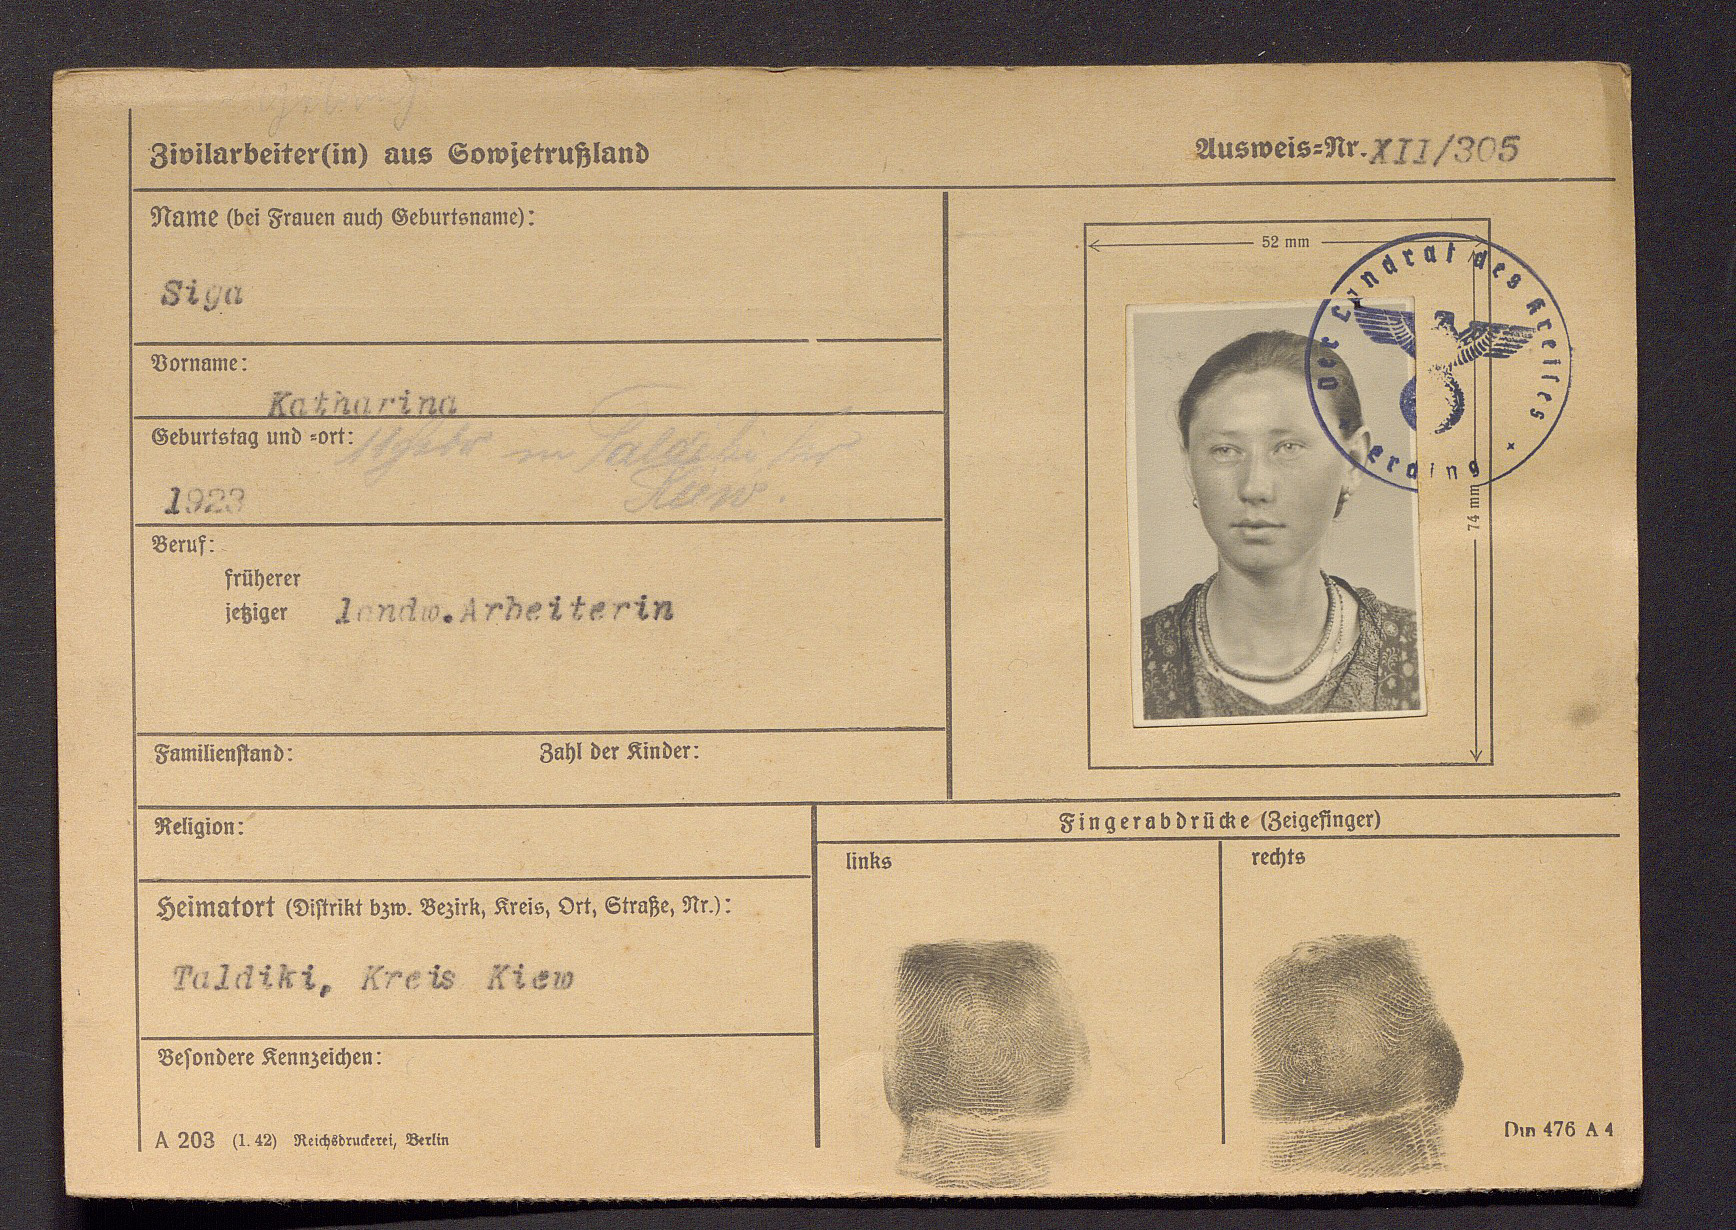 Zivilarbeiter(in) aus Sowjetrußland
Ausweis-Nr. XII/305
Name (bei Frauen auch Geburtsname):
Siga
Vorname:
Katharina
Geburtstag und -ort:
Kiew.
1923
Beruf:
früherer
jetziger landw. Arbeiterin
Familienstand: Zahl der Kinder:
Religion:
Heimatort (Distrikt bzw. Bezirk, Kreis, Ort, Straße, Nr.):
Taldiki, Kreis Kiew
Besondere Kennzeichen:
A 203 (1. 42) Reichsdruckerei, Berlin
52 mm
74 mm
Der Landrat des Kreises
Erding
Fingerabdrücke (Zeigefinger)
links
rechts
Din 476 A 4